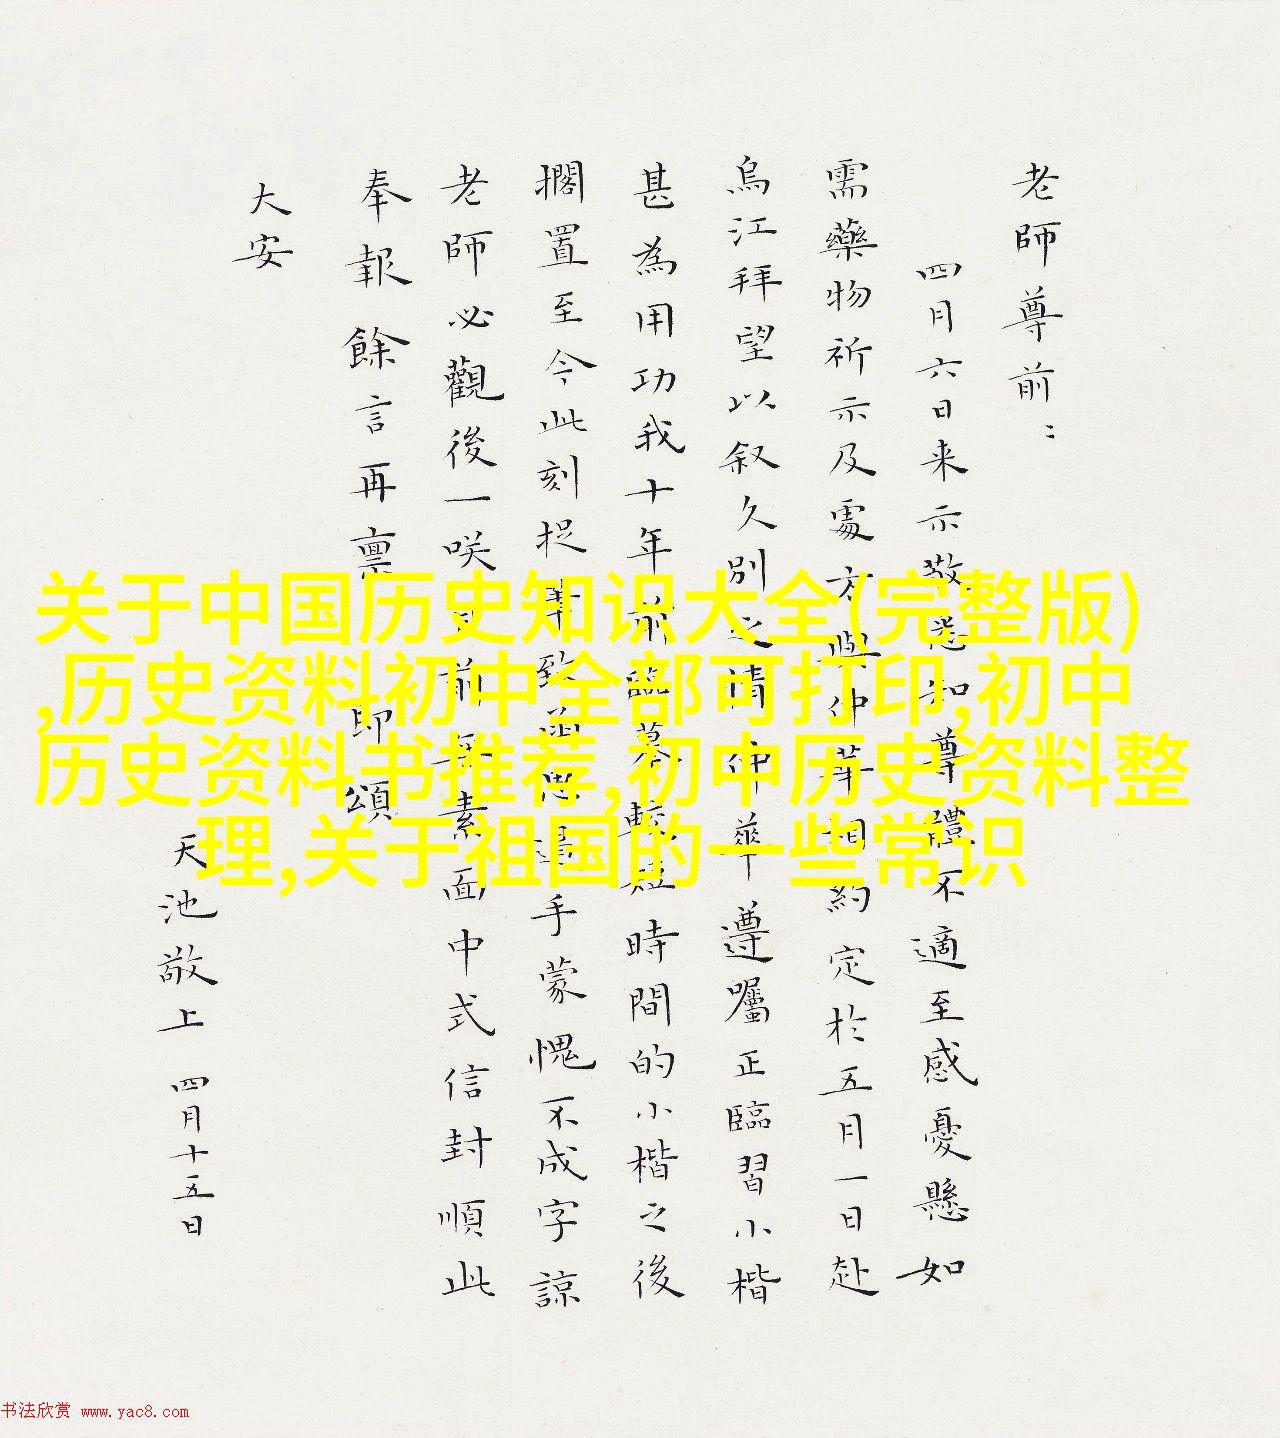 老師尊前：
四月六日来示敬悉知尊體不適至感憂懸如
需藥物祈示及處方與仲華相約定於五月一日赴
烏江拜望以叙久別之情仲華遵囑正臨習小楷
甚為用功我十年前臨摹較短時間的小楷之後
擱置至今此刻捉筆致函思手蒙愧不成字諒
老師必觀後一咲前素面中式信封順此
奉報餘言再禀 即頌
大安
天池敬上 四月十五日
关于中国历史知识大全(完整版)
,历史资料初中全部可打印,初中
历史资料书推荐,初中历史资料整
理,关于祖国的一些常识
书法欣赏 www.yac8.com